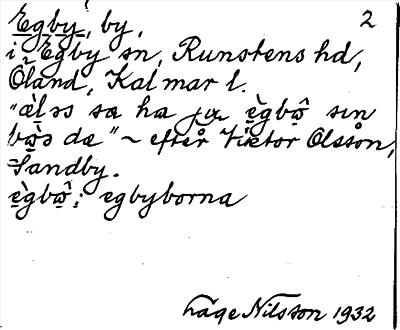 Egby, by, 2
i Egby sn, Runstens hd,
Öland, Kalmar l.
"æ̀ləs sa ha ja ègbω̂ sιn
bὼə da" ~ efter Viktor Olsson,
Sandby.
ègbω̂; egbyborna
Tage Nilsson 1932